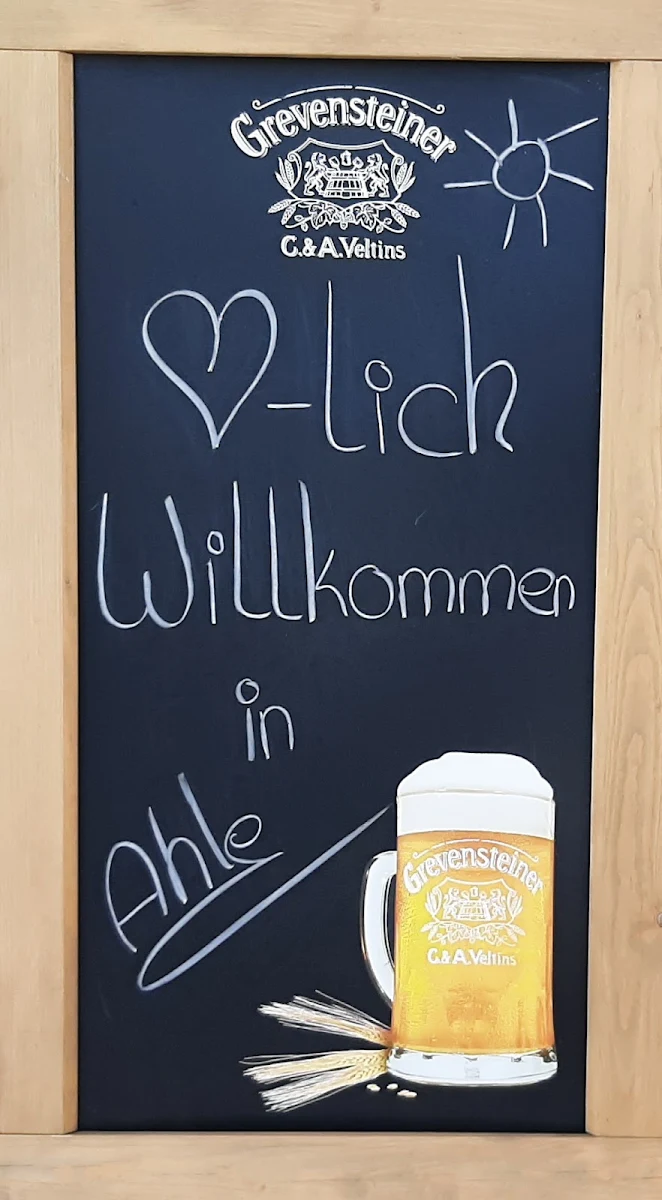 Grevensteiner
C.&A.Veltins
♡-lich
Willkommen
in
Ahle
Grevensteiner
C.&A.Veltins